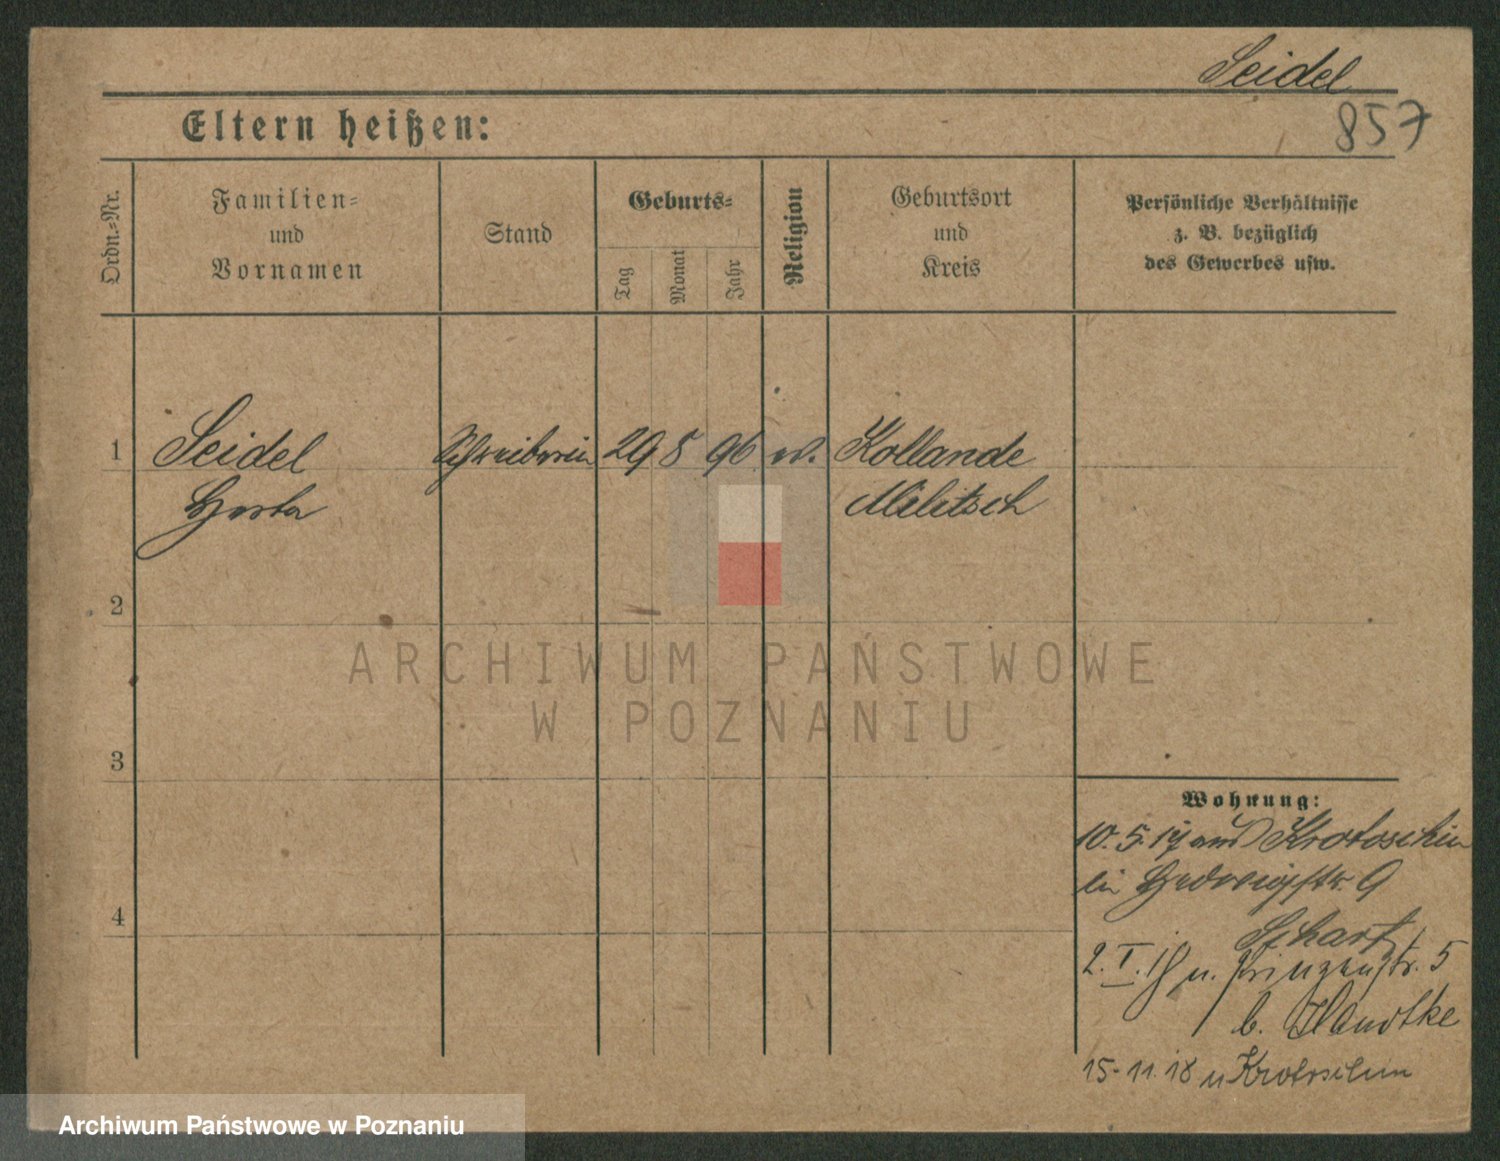 Seidel
857
Eltern heißen:
Ordn.-Nr.
Familien-
und
Vornamen
Stand
Geburts-
Tag
Monat
Jahr
Religion
Geburtsort
und
Kreis
Persönliche Verhältnisse
z. B. bezüglich
des Gewerbes usw.
1
Seidel
Herta
Schreiberin
29
8
96
ev.
Kollande
Militsch
2
3
4
Wohnung:
10. 5. 17 aus Krotoschin
Hedwigstr. 9
Scharf
2. I. 18 n. Prinzenstr. 5
b. Handtke
15-11.18 n Krotoschin
ARCHIWUM PAŃSTWOWE
W POZNANIU
Archiwum Państwowe w Poznaniu